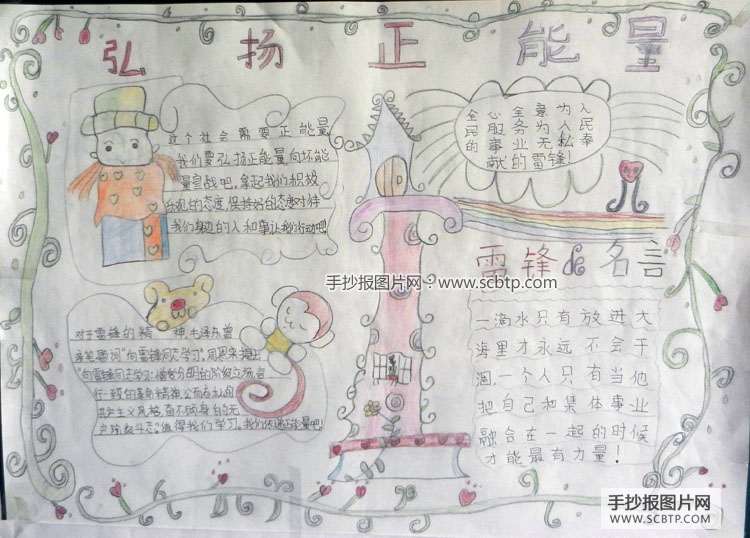 弘扬正能量
这个社会需要正能量
我们要弘扬正能量向坏能
量宣战吧。拿起我们积极
乐观的态度,保持好的态度对待
我们身边的人和事让我们行动吧
全心全意为人
民服务为人民
的事业无私奉
献的雷锋!
手抄报图片网:www.scbtp.com
雷锋de名言
一滴水只有放进大
海里才永远不会干
涸,一个人只有当他
把自己和集体事业
融合在一起的时候
才能最有力量!
对于雷锋的精神毛泽东曾
亲笔题词"向雷锋同志学习"。周恩来提出
"向雷锋同志学习:憎爱分明的阶级立场,言
行一致的革命精神,公而忘私的
共产主义风格,奋不顾身的无
产阶级斗志"值得我们学习。我们传递正能量吧!
手抄报图片网
WWW.SCBTP.COM